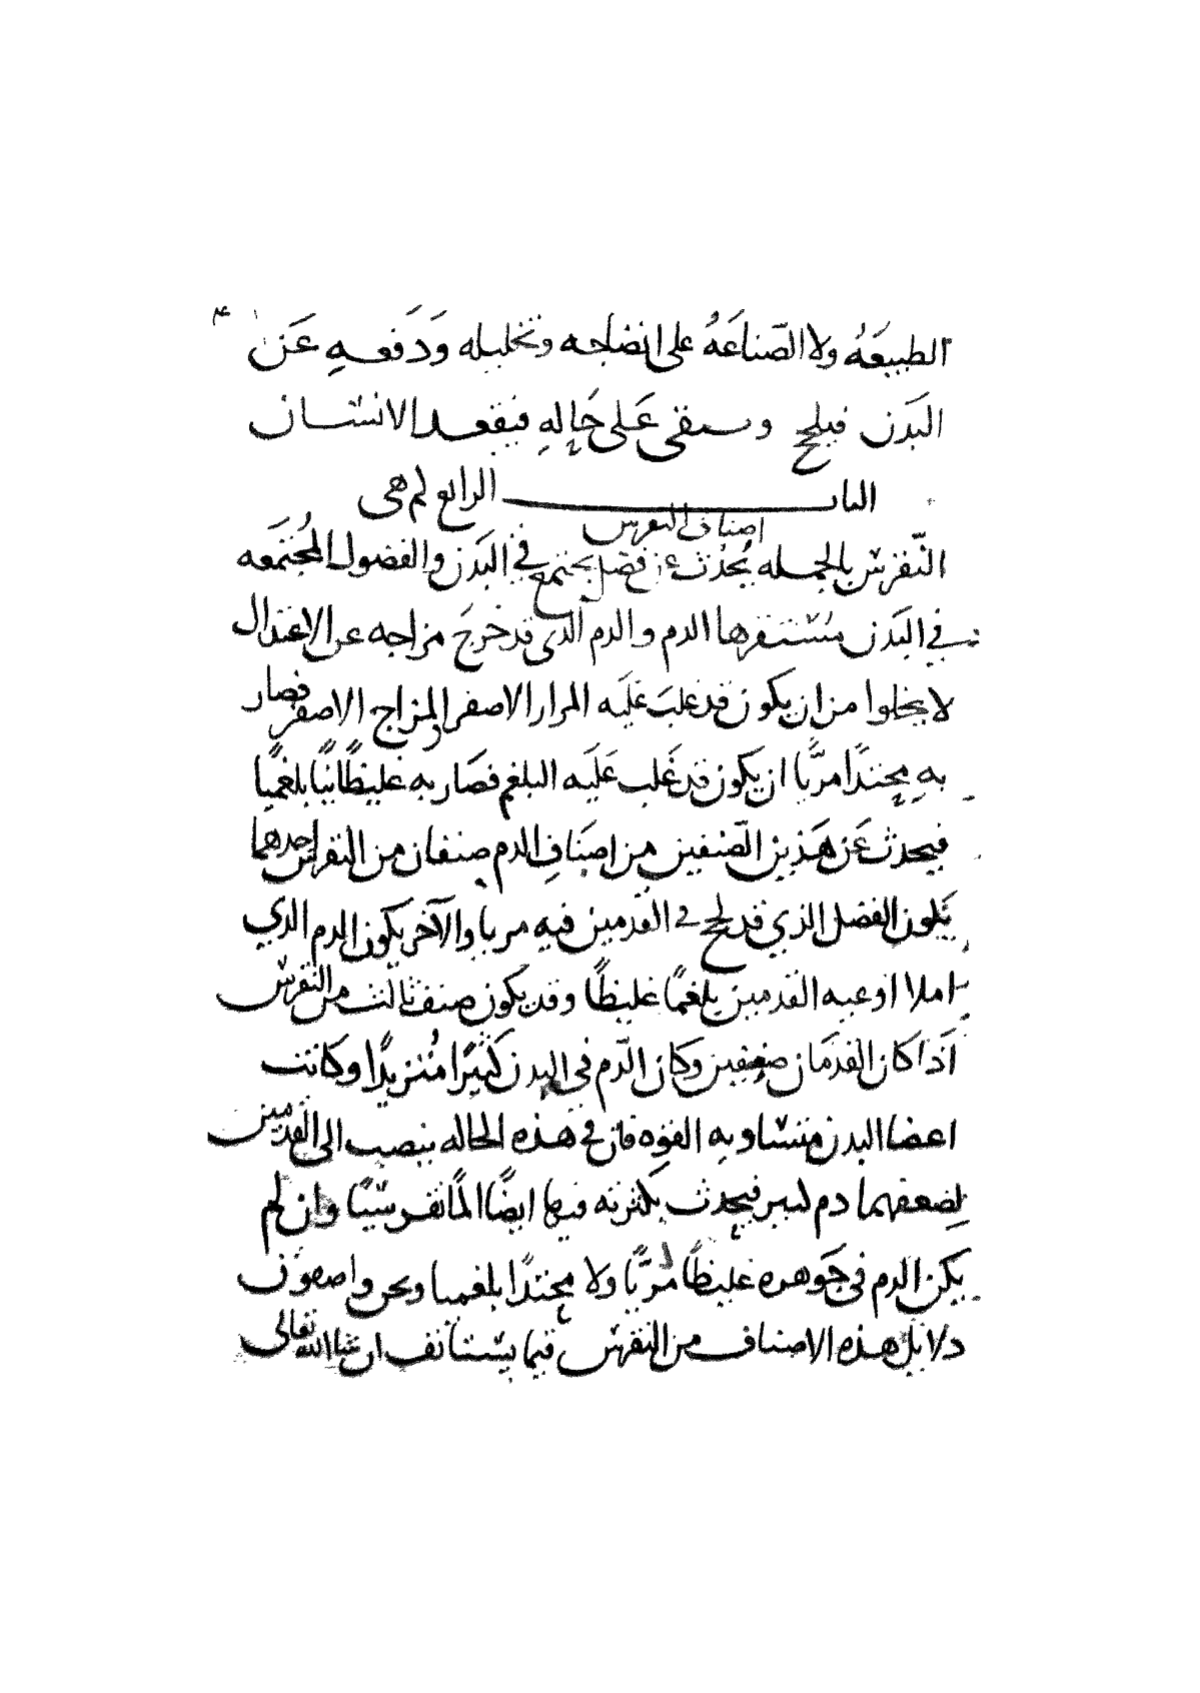 ٤
الطبيعَهُ ولا الصّناعَهُ على انضاجه وتحليله وَدَفعهِ عَن
البَدَن فيلحج وسقى عَلى حَالهِ فيقعد الانسان
الباب الرابع لم هى
اصناف النقرس
النّقرس بالجمله يحُدث عن فضل يجتمع في البَدَن والفضول المُجتمَعه
في البَدَن مستنقرها الدم والدم الذى قد خَرجَ مزاجه عن الاعتدال
لا يخلوا من ان يكون قد غلبَ عَليَه المرار الاصفر المزاج الاصفر فصار
بهِ محتدًا مرّيًا ان يكون قد غَلب عَليَه البلغم فصَار به غليظًا نيًا بلغميًا
فيحدث عَن هَذين الصّنفين من اصنَافِ الدم صنفان من النقرس احدهما
يَكون الفضل الذي قد لحج في القدمين فيهِ مريا والآخر يكون الدم الذي
املا اوعيه القدمين بلغمًا غليظًا وقد يكون صنف ثالث من النقرس
اذا كان القدمَان ضعيفين وكان الدّم في البدن كَثيرًا مُتزيدًا وكانت
اعضا البدن متساويه القوِه فان في هذه الحاله ينصب الى القدمين
لِضعفهما دم كثير فيحدث بكثرته فيها ايضًا المًا نقرسيًا وان لم
يكن الدم في جَوهره غليظًا مُرّيًا ولا محتدًا بلغميا ونحن واصفون
دلايل هذه الاصناف من النقرس فيما يستانف ان شا الله تعالى